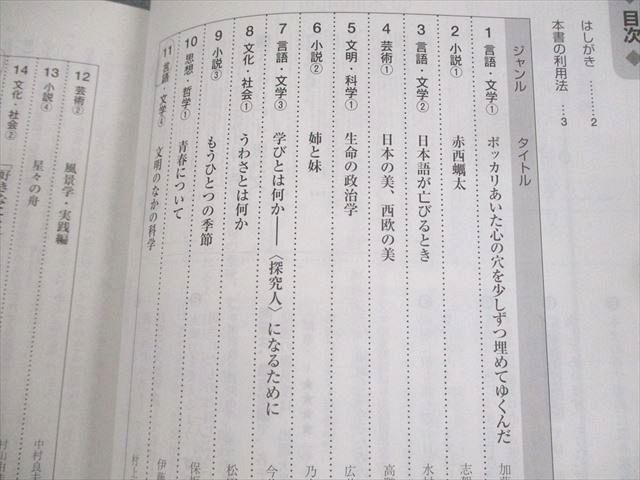 目次
はしがき………2
本書の利用法…3
ジャンル タイトル
1 言語・文学① ポッカリあいた心の穴を少しずつ埋めてゆくんだ 加
2 小説① 赤西蠣太 志賀
3 言語・文学② 日本語が亡びるとき 水村
4 芸術① 日本の美、西欧の美 高
5 文明・科学① 生命の政治学 広
6 小説② 姉と妹 乃
7 言語・文学③ 学びとは何か――〈探究人〉になるために 今
8 文化・社会① うわさとは何か 松
9 小説③ もうひとつの季節 保坂
10 思想・哲学① 青春について
11 言語・文学④ 文明のなかの科学 村上
12 芸術② 風景学・実践編 中村良夫
13 小説④ 星々の舟 村山由
14 文化・社会②